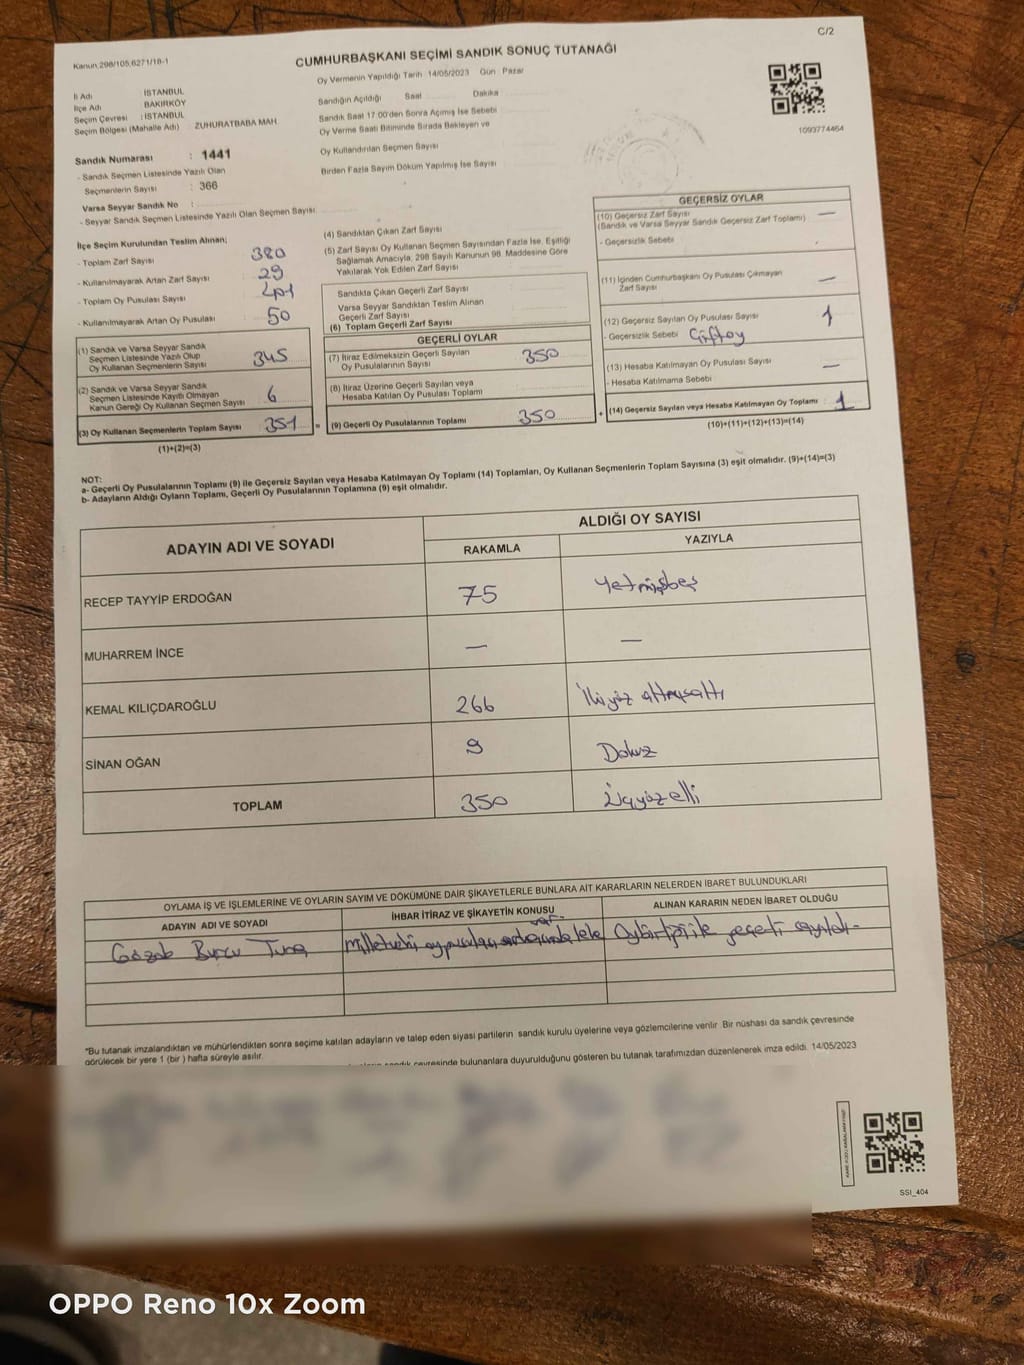 C/2
Kanun:298/105;6271/18-1
CUMHURBAŞKANI SEÇİMİ SANDIK SONUÇ TUTANAĞI
Oy Vermenin Yapıldığı Tarih 14/05/2023 Gün : Pazar
İl Adı : İSTANBUL
İlçe Adı BAKIRKÖY
Seçim Çevresi : İSTANBUL
Seçim Bölgesi (Mahalle Adı) ZUHURATBABA MAH.
Sandığın Açıldığı Saat Dakika
Sandık Saat 17.00'den Sonra Açılmış İse Sebebi
Oy Verme Saati Bitiminde Sırada Bekleyen ve
Oy Kullandırılan Seçmen Sayısı
Birden Fazla Sayım Döküm Yapılmış İse Sayısı
1093774464
Sandık Numarası : 1441
- Sandık Seçmen Listesinde Yazılı Olan
Seçmenlerin Sayısı : 366
Varsa Seyyar Sandık No :
- Seyyar Sandık Seçmen Listesinde Yazılı Olan Seçmen Sayısı:
İlçe Seçim Kurulundan Teslim Alınan;
- Toplam Zarf Sayısı 380
- Kullanılmayarak Artan Zarf Sayısı : 29
- Toplam Oy Pusulası Sayısı 401
- Kullanılmayarak Artan Oy Pusulası : 50
(1) Sandık ve Varsa Seyyar Sandık
Seçmen Listesinde Yazılı Olup
Oy Kullanan Seçmenlerin Sayısı 345
(2) Sandık ve Varsa Seyyar Sandık
Seçmen Listesinde Kayıtlı Olmayan
Kanun Gereği Oy Kullanan Seçmen Sayısı 6
(3) Oy Kullanan Seçmenlerin Toplam Sayısı : 351
(1)+(2)=(3)
(4) Sandıktan Çıkan Zarf Sayısı
(5) Zarf Sayısı Oy Kullanan Seçmen Sayısından Fazla İse, Eşitliği
Sağlamak Amacıyla, 298 Sayılı Kanunun 98. Maddesine Göre
Yakılarak Yok Edilen Zarf Sayısı
Sandıkta Çıkan Geçerli Zarf Sayısı
Varsa Seyyar Sandıktan Teslim Alınan
Geçerli Zarf Sayısı
(6) Toplam Geçerli Zarf Sayısı
GEÇERLİ OYLAR
(7) İtiraz Edilmeksizin Geçerli Sayılan
Oy Pusulalarının Sayısı 350
(8) İtiraz Üzerine Geçerli Sayılan veya
Hesaba Katılan Oy Pusulası Toplamı
= (9) Geçerli Oy Pusulalarının Toplamı 350 +
GEÇERSİZ OYLAR
(10) Geçersiz Zarf Sayısı —
(Sandık ve Varsa Seyyar Sandık Geçersiz Zarf Toplamı)
- Geçersizlik Sebebi
(11) İçinden Cumhurbaşkanı Oy Pusulası Çıkmayan —
Zarf Sayısı
(12) Geçersiz Sayılan Oy Pusulası Sayısı 1
- Geçersizlik Sebebi Çift oy
(13) Hesaba Katılmayan Oy Pusulası Sayısı —
- Hesaba Katılmama Sebebi
(14) Geçersiz Sayılan veya Hesaba Katılmayan Oy Toplamı : 1
(10)+(11)+(12)+(13)=(14)
NOT:
a- Geçerli Oy Pusulalarının Toplamı (9) ile Geçersiz Sayılan veya Hesaba Katılmayan Oy Toplamı (14) Toplamları, Oy Kullanan Seçmenlerin Toplam Sayısına (3) eşit olmalıdır. (9)+(14)=(3)
b- Adayların Aldığı Oyların Toplamı, Geçerli Oy Pusulalarının Toplamına (9) eşit olmalıdır.
ADAYIN ADI VE SOYADI ALDIĞI OY SAYISI
RAKAMLA YAZIYLA
RECEP TAYYİP ERDOĞAN 75 Yetmişbeş
MUHARREM İNCE — —
KEMAL KILIÇDAROĞLU 266 İkiyüz altmışaltı
SİNAN OĞAN 9 Dokuz
TOPLAM 350 Üçyüzelli
OYLAMA İŞ VE İŞLEMLERİNE VE OYLARIN SAYIM VE DÖKÜMÜNE DAİR ŞİKAYETLERLE BUNLARA AİT KARARLARIN NELERDEN İBARET BULUNDUKLARI
ADAYIN ADI VE SOYADI İHBAR İTİRAZ VE ŞİKAYETİN KONUSU ALINAN KARARIN NEDEN İBARET OLDUĞU
Gözde Burcu Tuna Milletvekili oy pusulası arkasında leke var. Oybirliği ile geçerli sayıldı.
*Bu tutanak imzalandıktan ve mühürlendikten sonra seçime katılan adayların ve talep eden siyasi partilerin sandık kurulu üyelerine veya gözlemcilerine verilir. Bir nüshası da sandık çevresinde
görülecek bir yere 1 (bir ) hafta süreyle asılır.
sandık çevresinde bulunanlara duyurulduğunu gösteren bu tutanak tarafımızdan düzenlenerek imza edildi. 14/05/2023
SSI_404
OPPO Reno 10x Zoom